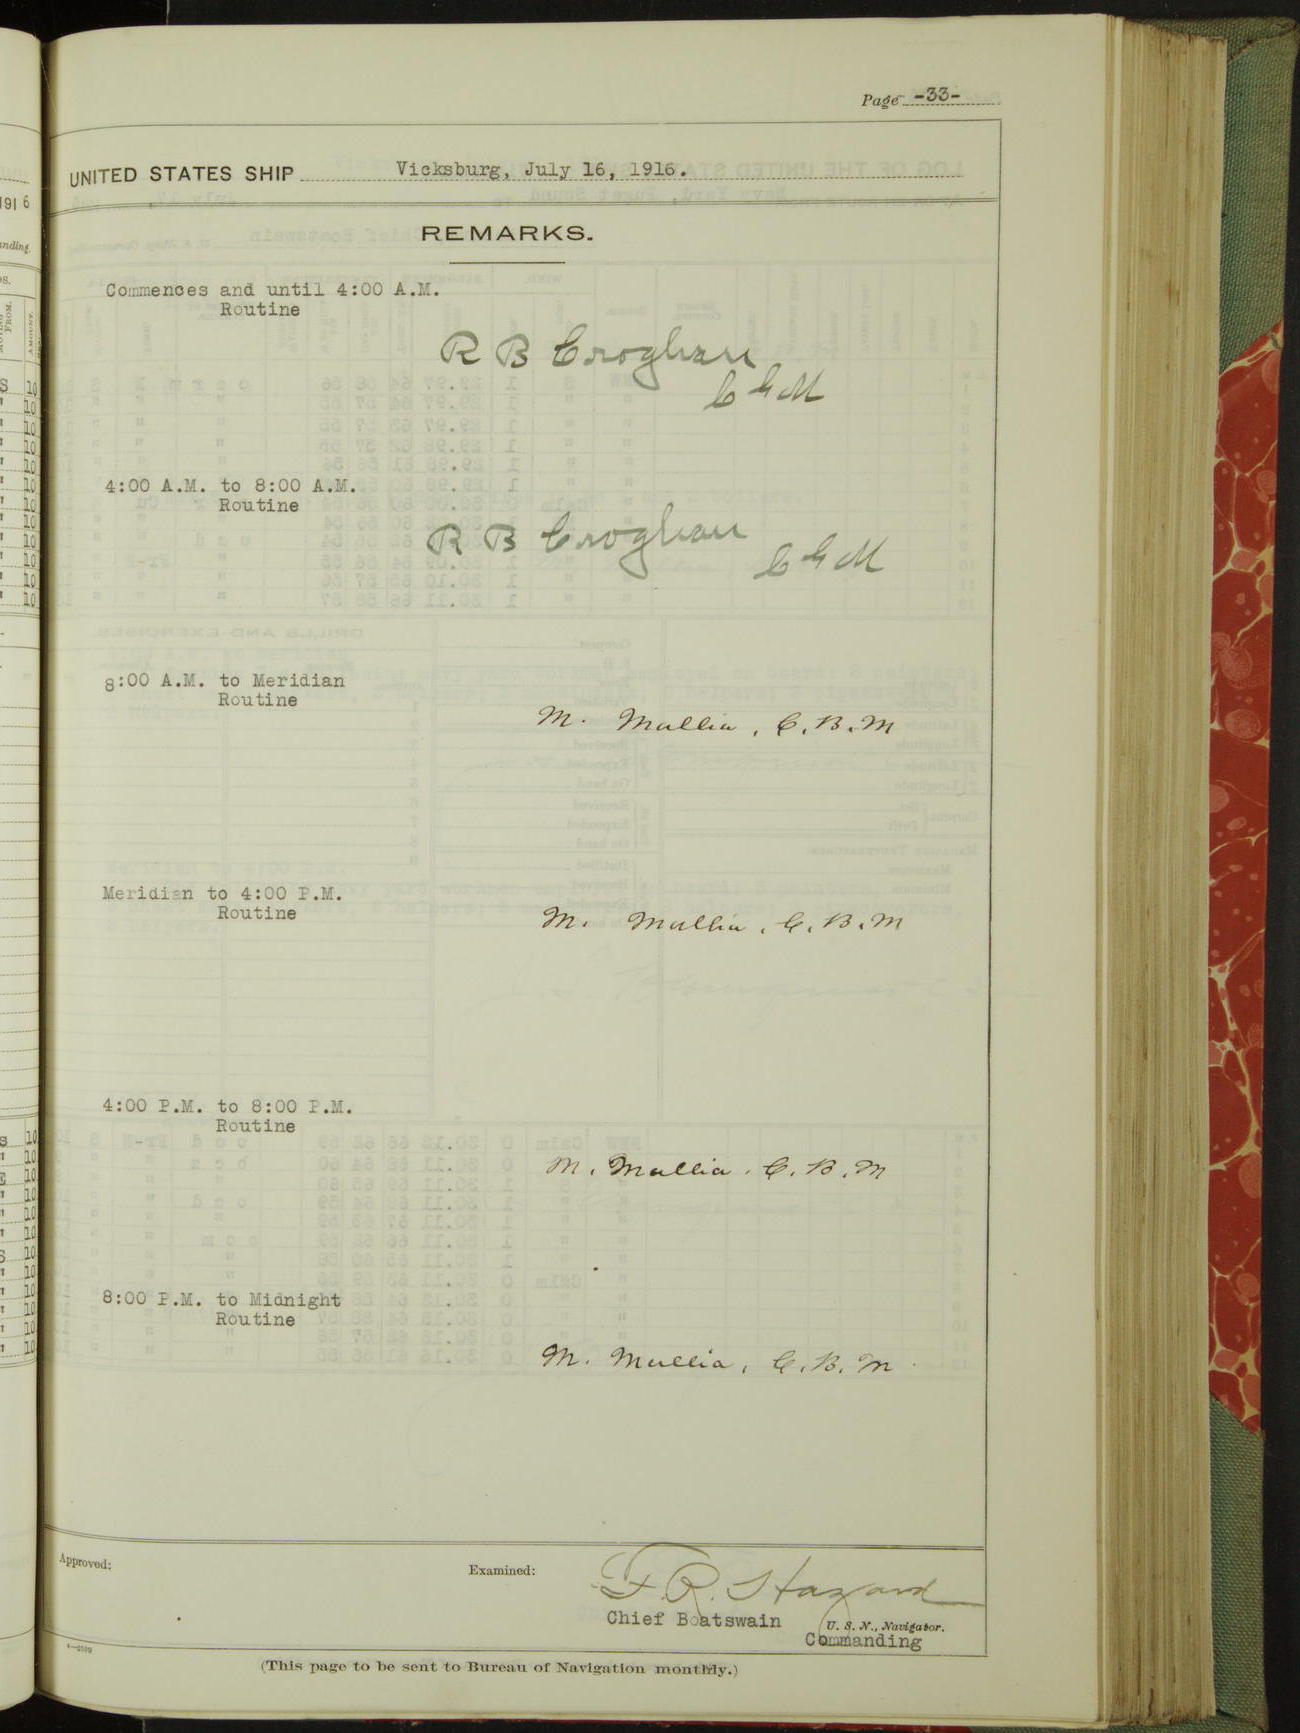 Page -33-
UNITED STATES SHIP Vicksburg, July 16, 1916.
REMARKS.
Commences and until 4:00 A.M.
Routine
R B Croghan
C G M
4:00 A.M. to 8:00 A.M.
Routine
R B Croghan
C G M
8:00 A.M. to Meridian
Routine
M. Mullia, C.B.M
Meridian to 4:00 P.M.
Routine
M. Mullia, C.B.M
4:00 P.M. to 8:00 P.M.
Routine
M. Mullia. C.B.M
8:00 P.M. to Midnight
Routine
M. Mullia, C.B.M.
Approved:
Examined:
F.R. Hazard
Chief Boatswain
U. S. N., Navigator.
Commanding
(This page to be sent to Bureau of Navigation monthly.)